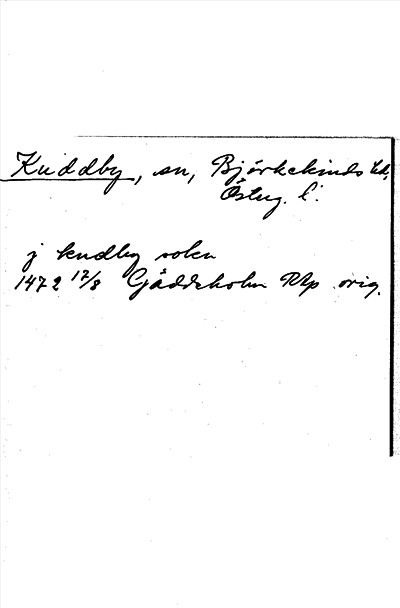 Kuddby, sn, Björkekinds hd,
Östug. l.
j kudby sokn
1472 17/8 Gäddeholm RAp orig.